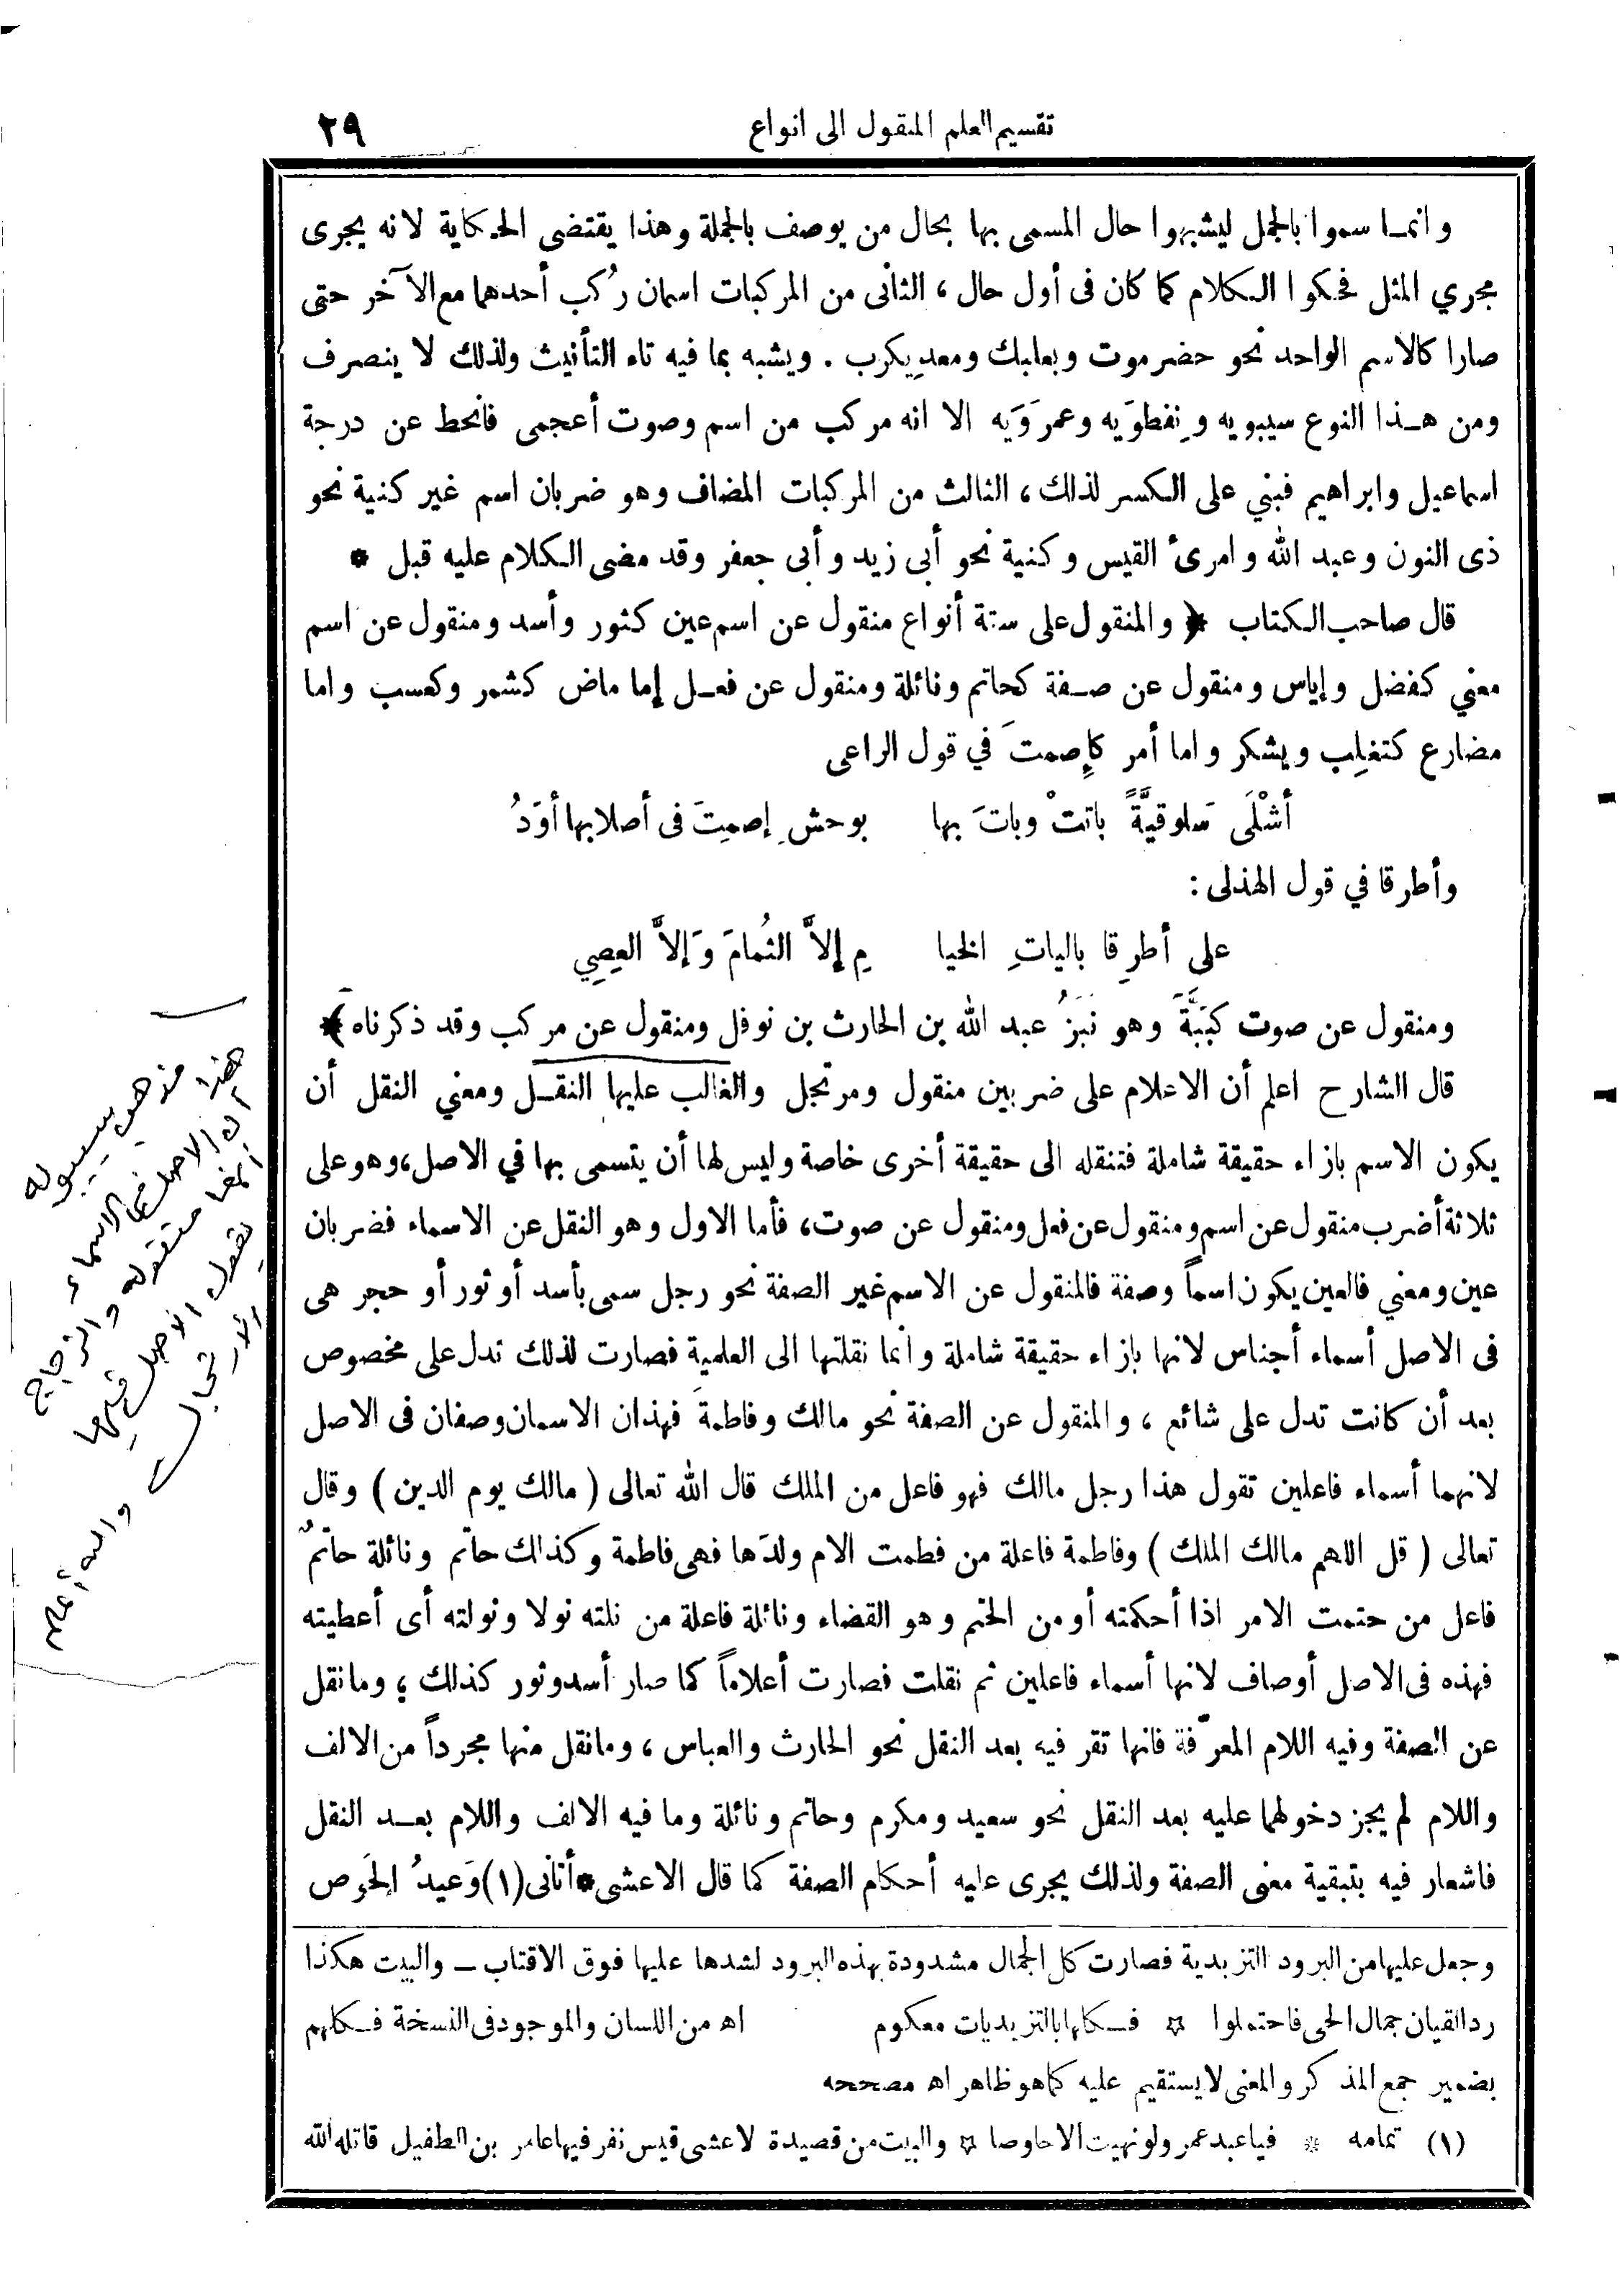 تقسيم العلم المنقول الى انواع ٢٩
وانمـا سموا بالجمل ليشبهوا حال المسمى بها بحال من يوصف بالجملة وهذا يقتضى الحـكاية لانه يجرى
مجري المثل فحكوا الـكلام كما كان فى أول حال ، الثانى من المركبات اسمان رُكب أحدهما مع الآخر حتى
صارا كالاسم الواحد نحو حضرموت وبعلبك ومعديكرب . ويشبه بما فيه تاء التأنيث ولذلك لا ينصرف
ومن هـذا النوع سيبويه ونِفطوَيه وعمرَوَيه الا انه مركب من اسم وصوت أعجمى فانحط عن درجة
اسماعيل وابراهيم فبني على الـكسر لذلك ، الثالث من المركبات المضاف وهو ضربان اسم غير كنية نحو
ذى النون وعبد الله وامرئ القيس وكنية نحو أبى زيد وأبى جعفر وقد مضى الـكلام عليه قبل *
قال صاحب الـكتاب * ﴿ والمنقول على ستة أنواع منقول عن اسم عين كثور وأسد ومنقول عن اسم
معني كفضل وإياس ومنقول عن صـفة كحاتم ونائلة ومنقول عن فعـل إما ماض كشمر وكعسب واما
مضارع كتغلِب ويشكر واما أمر كإصمتَ في قول الراعى
أشْلَى سَلوقيَّةً باتتْ وباتَ بها بوحشِ إصمِتَ فى أصلابها أوَدُ
وأطرقا في قول الهذلى :
على أطرِقا بالياتِ الخيا مِ إلاَّ الثُمامَ وَإلاَّ العِصِي
ومنقول عن صوت كبَبَّةَ وهو نَبَزُ عبد الله بن الحارث بن نوفل ومنقول عن مركب وقد ذكرناه ﴾ *
قال الشارح اعلم أن الاعلام على ضربين منقول ومرتجل والغالب عليها النقـل ومعني النقل أن
يكون الاسم بازاء حقيقة شاملة فتنقله الى حقيقة أخرى خاصة وليس لها أن يتسمى بها في الاصل، وهو على
ثلاثة أضرب منقول عن اسم ومنقول عن فعل ومنقول عن صوت، فأما الاول وهو النقل عن الاسماء فضربان
عين ومعني فالعين يكون اسماً وصفة فالمنقول عن الاسم غير الصفة نحو رجل سمى بأسد أو ثور أو حجر هى
فى الاصل أسماء أجناس لانها بازاء حقيقة شاملة وانما نقلتها الى العلمية فصارت لذلك تدل على مخصوص
بعد أن كانت تدل على شائع ، والمنقول عن الصفة نحو مالك وفاطمةَ فهذان الاسمان وصفان فى الاصل
لانهما أسماء فاعلين تقول هذا رجل مالك فهو فاعل من الملك قال الله تعالى ( مالك يوم الدين ) وقال
تعالى ( قل اللهم مالك الملك ) وفاطمة فاعلة من فطمت الام ولدَها فهى فاطمة وكذلك حاتم ونائلة حاتمٌ
فاعل من حتمت الامر اذا أحكمته أو من الحتم وهو القضاء ونائلة فاعلة من نلته نولا ونولته أى أعطيته
فهذه فى الاصل أوصاف لانها أسماء فاعلين ثم نقلت فصارت أعلاماً كما صار أسد وثور كذلك ، وما نقل
عن الصفة وفيه اللام المعرّفة فانها تقر فيه بعد النقل نحو الحارث والعباس ، وما نقل منها مجرداً من الالف
واللام لم يجز دخولهما عليه بعد النقل نحو سعيد ومكرم وحاتم ونائلة وما فيه الالف واللام بعـد النقل
فاشعار فيه بتبقية معنى الصفة ولذلك يجرى عليه أحكام الصفة كما قال الاعشى * أتانى (١) وَعيدُ الحَوص
وجعل عليها من البرود التزيدية فصارت كل الجمال مشدودة بهذه البرود لشدها عليها فوق الاقتاب ــ والبيت هكذا
رد القيان جمال الحى فاحتملوا ☆ فـكلها بالتزيديات معكوم اه من اللسان والموجود فى النسخة فـكلهم
بضمير جمع المذكر والمعنى لا يستقيم عليه كما هو ظاهر اه مصححه
(١) تمامه * فيا عبد عمرو لو نهيت الاحاوصا ☆ والبيت من قصيدة لاعشى قيس نفر فيها عامر بن الطفيل قاتله الله
هذا مذهب سيبويه
أن الاصل في الاسماء
أنها منقولة والزجاج
يقول الاصل فيها
الارتجال
والله أعلم